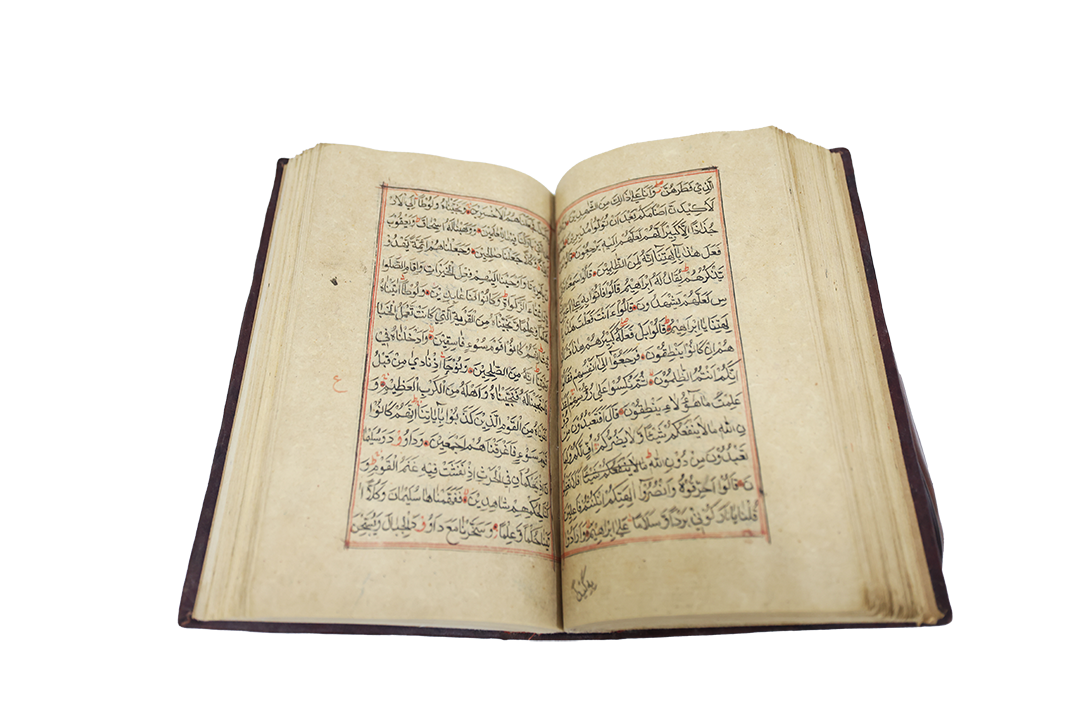 الَّذِي فَطَرَهُنَّ وَاَنَا عَلٰى ذٰلِكَ مِنَ الشّٰهِدِيْنَ
لَاَكِيْدَنَّ اَصْنَامَكُمْ بَعْدَ اَنْ تُوَلُّوا مُدْبِرِيْنَ
جُذَاذًا اِلَّا كَبِيْرًا لَهُمْ لَعَلَّهُمْ اِلَيْهِ يَرْجِعُوْنَ قَالُوْا
فَعَلَ هٰذَا بِاٰلِهَتِنَا اِنَّهُ لَمِنَ الظّٰلِمِيْنَ قَالُوْا سَمِعْنَا
يَذْكُرُهُمْ يُقَالُ لَهُ اِبْرَاهِيْمُ قَالُوْا فَاْتُوْا بِهِ عَلٰى
سِ لَعَلَّهُمْ يَشْهَدُوْنَ قَالُوْا ءَاَنْتَ فَعَلْتَ هٰذَا
لِهَتِنَا يَا اِبْرَاهِيْمُ قَالَ بَلْ فَعَلَهُ كَبِيْرُهُمْ هٰذَا
هُمْ اِنْ كَانُوْا يَنْطِقُوْنَ فَرَجَعُوْا اِلٰى اَنْفُسِهِمْ فَقَالُوْا
اِنَّكُمْ اَنْتُمُ الظّٰلِمُوْنَ ثُمَّ نُكِسُوْا عَلٰى رُؤُسِهِمْ لَقَدْ
عَلِمْتَ مَا هٰؤُلَاءِ يَنْطِقُوْنَ قَالَ اَفَتَعْبُدُوْنَ مِنْ
نِ اللهِ مَا لَا يَنْفَعُكُمْ شَيْئًا وَلَا يَضُرُّكُمْ اُفٍّ لَكُمْ وَلِمَا
تَعْبُدُوْنَ مِنْ دُوْنِ اللهِ
نَ قَالُوْا حَرِّقُوْهُ وَانْصُرُوْا اٰلِهَتَكُمْ اِنْ كُنْتُمْ فَاعِلِيْنَ
قُلْنَا يَا نَارُ كُوْنِيْ بَرْدًا وَسَلَامًا عَلٰى اِبْرَاهِيْمَ وَاَرَادُوْا
فَجَعَلْنَاهُمُ الْاَخْسَرِيْنَ وَنَجَّيْنَاهُ وَلُوْطًا اِلَى الْاَرْ
فِيْهَا لِلْعَالَمِيْنَ وَوَهَبْنَا لَهُ اِسْحَاقَ وَيَعْقُوْبَ
جَعَلْنَا صَالِحِيْنَ وَجَعَلْنَاهُمْ اَئِمَّةً يَهْدُوْنَ
بِاَمْرِنَا وَاَوْحَيْنَا اِلَيْهِمْ فِعْلَ الْخَيْرَاتِ وَاِقَامَ الصَّلٰو
وَاِيْتَاءَ الزَّكٰوةِ وَكَانُوْا لَنَا عَابِدِيْنَ وَلُوْطًا اٰتَيْنَاهُ
حُكْمًا وَعِلْمًا وَنَجَّيْنَاهُ مِنَ الْقَرْيَةِ الَّتِيْ كَانَتْ تَعْمَلُ الْخَبَا
اِنَّهُمْ كَانُوْا قَوْمَ سَوْءٍ فَاسِقِيْنَ وَاَدْخَلْنَاهُ فِيْ
رَحْمَتِنَا اِنَّهُ مِنَ الصّٰلِحِيْنَ وَنُوْحًا اِذْ نَادٰى مِنْ قَبْلُ
فَاسْتَجَبْنَا لَهُ فَنَجَّيْنَاهُ وَاَهْلَهُ مِنَ الْكَرْبِ الْعَظِيْمِ وَ
نَصَرْنَاهُ مِنَ الْقَوْمِ الَّذِيْنَ كَذَّبُوْا بِاٰيَاتِنَا اِنَّهُمْ كَانُوْا
قَوْمَ سَوْءٍ فَاَغْرَقْنَاهُمْ اَجْمَعِيْنَ وَدَاوُوْدَ وَسُلَيْمَا
نَ اِذْ يَحْكُمَانِ فِي الْحَرْثِ اِذْ نَفَشَتْ فِيْهِ غَنَمُ الْقَوْمِ وَ
كُنَّا لِحُكْمِهِمْ شَاهِدِيْنَ فَفَهَّمْنَاهَا سُلَيْمَانَ وَكُلًّا اٰ
تَيْنَا حُكْمًا وَعِلْمًا وَسَخَّرْنَا مَعَ دَاوُوْدَ الْجِبَالَ يُسَبِّحْنَ
ع